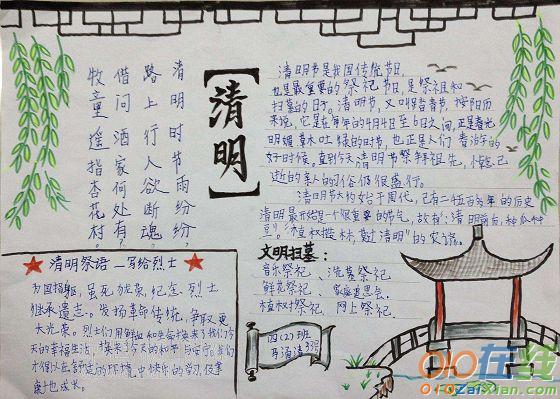 清明
清明时节雨纷纷，
路上行人欲断魂，
借问酒家何处有，
牧童遥指杏花村。
清明节是我国传统节日，
也是最重要的祭祀节日，是祭祖和
扫墓的日子。清明节，又叫踏青节，按阳历
来说，它是在每年的4月4日至6日之间，正是春光
明媚草木吐绿的时节，也正是人们春游的
好时候，直到今天清明节祭拜祖先，悼念已
逝的亲人的习俗仍很盛行。
清明节大约始于周代，已有二千五百多年的历史
清明最开始是一个很重要的节气，故有：清明前后，种瓜种
豆。”“植树造林，莫过清明”的农谚。
文明扫墓：
音乐祭祀、洗墓祭祀
鲜花祭祀、家庭追思会
植树祭祀、网上祭祀。
清明祭语—写给烈士
为国捐躯，虽死犹荣，纪念烈士
继承遗志。发扬革命传统，争取更
大光荣。烈士们用鲜血和生命换来了我们今
天的幸福生活，换来了今天的和平与安宁。我们
才得以在舒适的环境中快乐的学习，健康
四（2）班
010在线
010zaixian.com